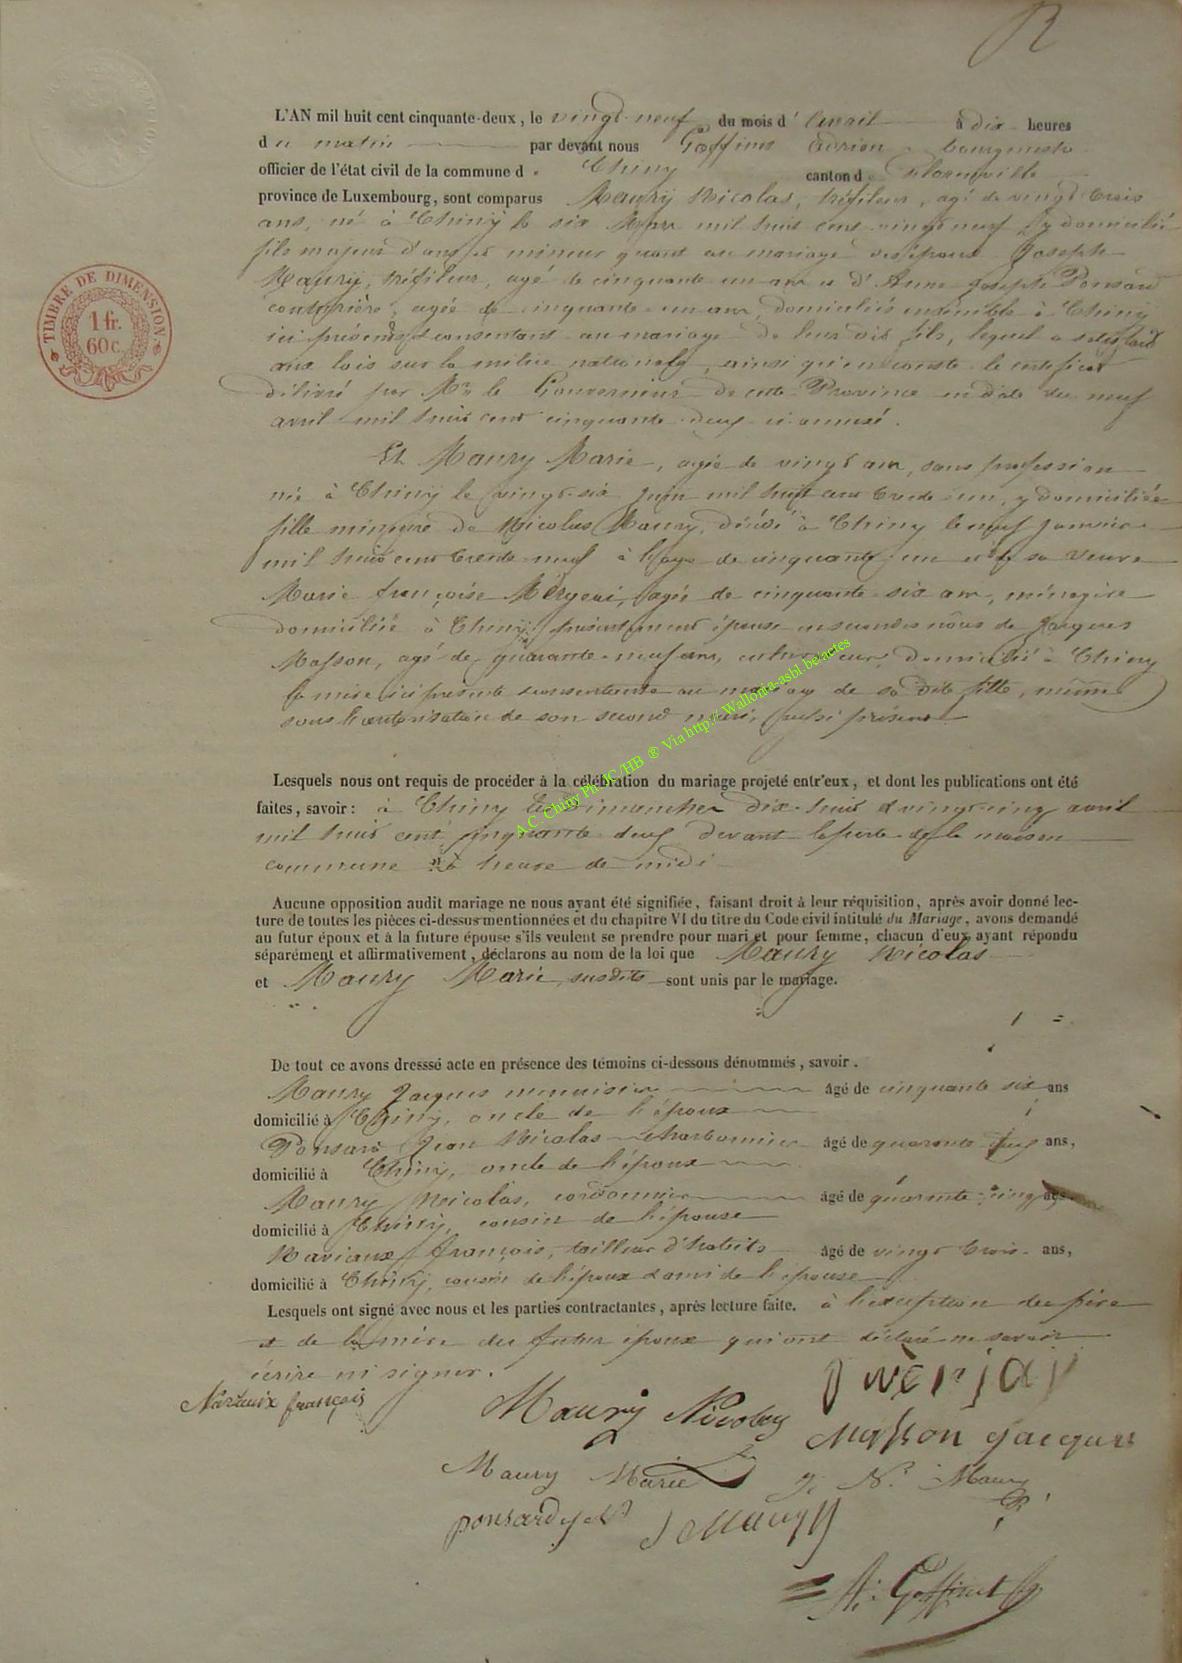 TIMBRE DE DIMENSION
1 fr.
60 c.
L'AN mil huit cent cinquante-deux, le vingt-neuf du mois d'avril à dix heures
du matin par devant nous Goffinet Adrien bourgmestre
officier de l'état civil de la commune de Chiny canton de Florenville
province de Luxembourg, sont comparus Maury Nicolas, tréfileur, agé de vingt trois
ans, né à Chiny le six mars mil huit cent vingt neuf y domicilié
fils majeur d'ans et mineur quant au mariage des époux Joseph
Maury, tréfileur, agé de cinquante un ans et d'Anne Joseph Ponsard
couturière, agée de cinquante un ans, domiciliés ensemble à Chiny
ici présents et consentant au mariage de leur dit fils, lequel a satisfait
aux lois sur la milice nationale, ainsi qu'en conste le certificat
délivré par Mr le Gouverneur de cette Province en date du neuf
avril mil huit cent cinquante deux ci annexé.
Et Maury Marie, agée de vingt ans, sans profession
née à Chiny le vingt-six juin mil huit cent trente un, y domiciliée
fille mineure de Nicolas Maury, décédé à Chiny le neuf janvier
mil huit cent trente neuf à l'age de cinquante un et de sa veuve
Marie françoise agée de cinquante six ans, ménagère
domiciliée à Chiny, présentement épouse en secondes nôces de Jacques
Masson, agé de quarante-neuf ans, cultivateur, domicilié à Chiny
la mère ici présente consentante au mariage de sa dite fille, même
sous l'autorisation de son second mari, aussi présent
Lesquels nous ont requis de procéder à la célébration du mariage projeté entr'eux, et dont les publications ont été
faites, savoir: à Chiny les Dimanches dix-huit et vingt-cinq avril
mil huit cent cinquante deux devant la porte de la maison
commune à heure de midi
Aucune opposition audit mariage ne nous ayant été signifiée, faisant droit à leur réquisition, après avoir donné lec-
ture de toutes les pièces ci-dessus mentionnées et du chapitre VI du titre du Code civil intitulé du Mariage, avons demandé
au futur époux et à la future épouse s'ils veulent se prendre pour mari et pour femme, chacun d'eux ayant répondu
séparément et affirmativement, déclarons au nom de la loi que Maury Nicolas
et Maury Marie, susdits sont unis par le mariage.
De tout ce avons dresssé acte en présence des témoins ci-dessous dénommés, savoir.
Maury Jacques menuisier âgé de cinquante six ans
domicilié à Chiny, oncle de l'époux
Ponsard Jean Nicolas charbonnier âgé de quarante deux ans,
domicilié à Chiny, oncle de l'époux
Maury Nicolas, cordonnier âgé de quarante-cinq ans
domicilié à Chiny, cousin de l'épouse
Naviaux françois, tailleur d'habits âgé de vingt trois ans,
domicilié à Chiny, cousin de l'époux et ami de l'épouse
Lesquels ont signé avec nous et les parties contractantes, après lecture faite. à l'exception des père
et de la mère du futur époux qui ont déclaré ne savoir
écrire ni signer.
françois
Maury Nicolas
Masson Jacques
Maury Marie
J. N. Maury
ponsard j N
J Maury
A. Goffinet
A.C. Chiny Ph. JC/HB ® Via http://Wallonia-asbl.be-actes